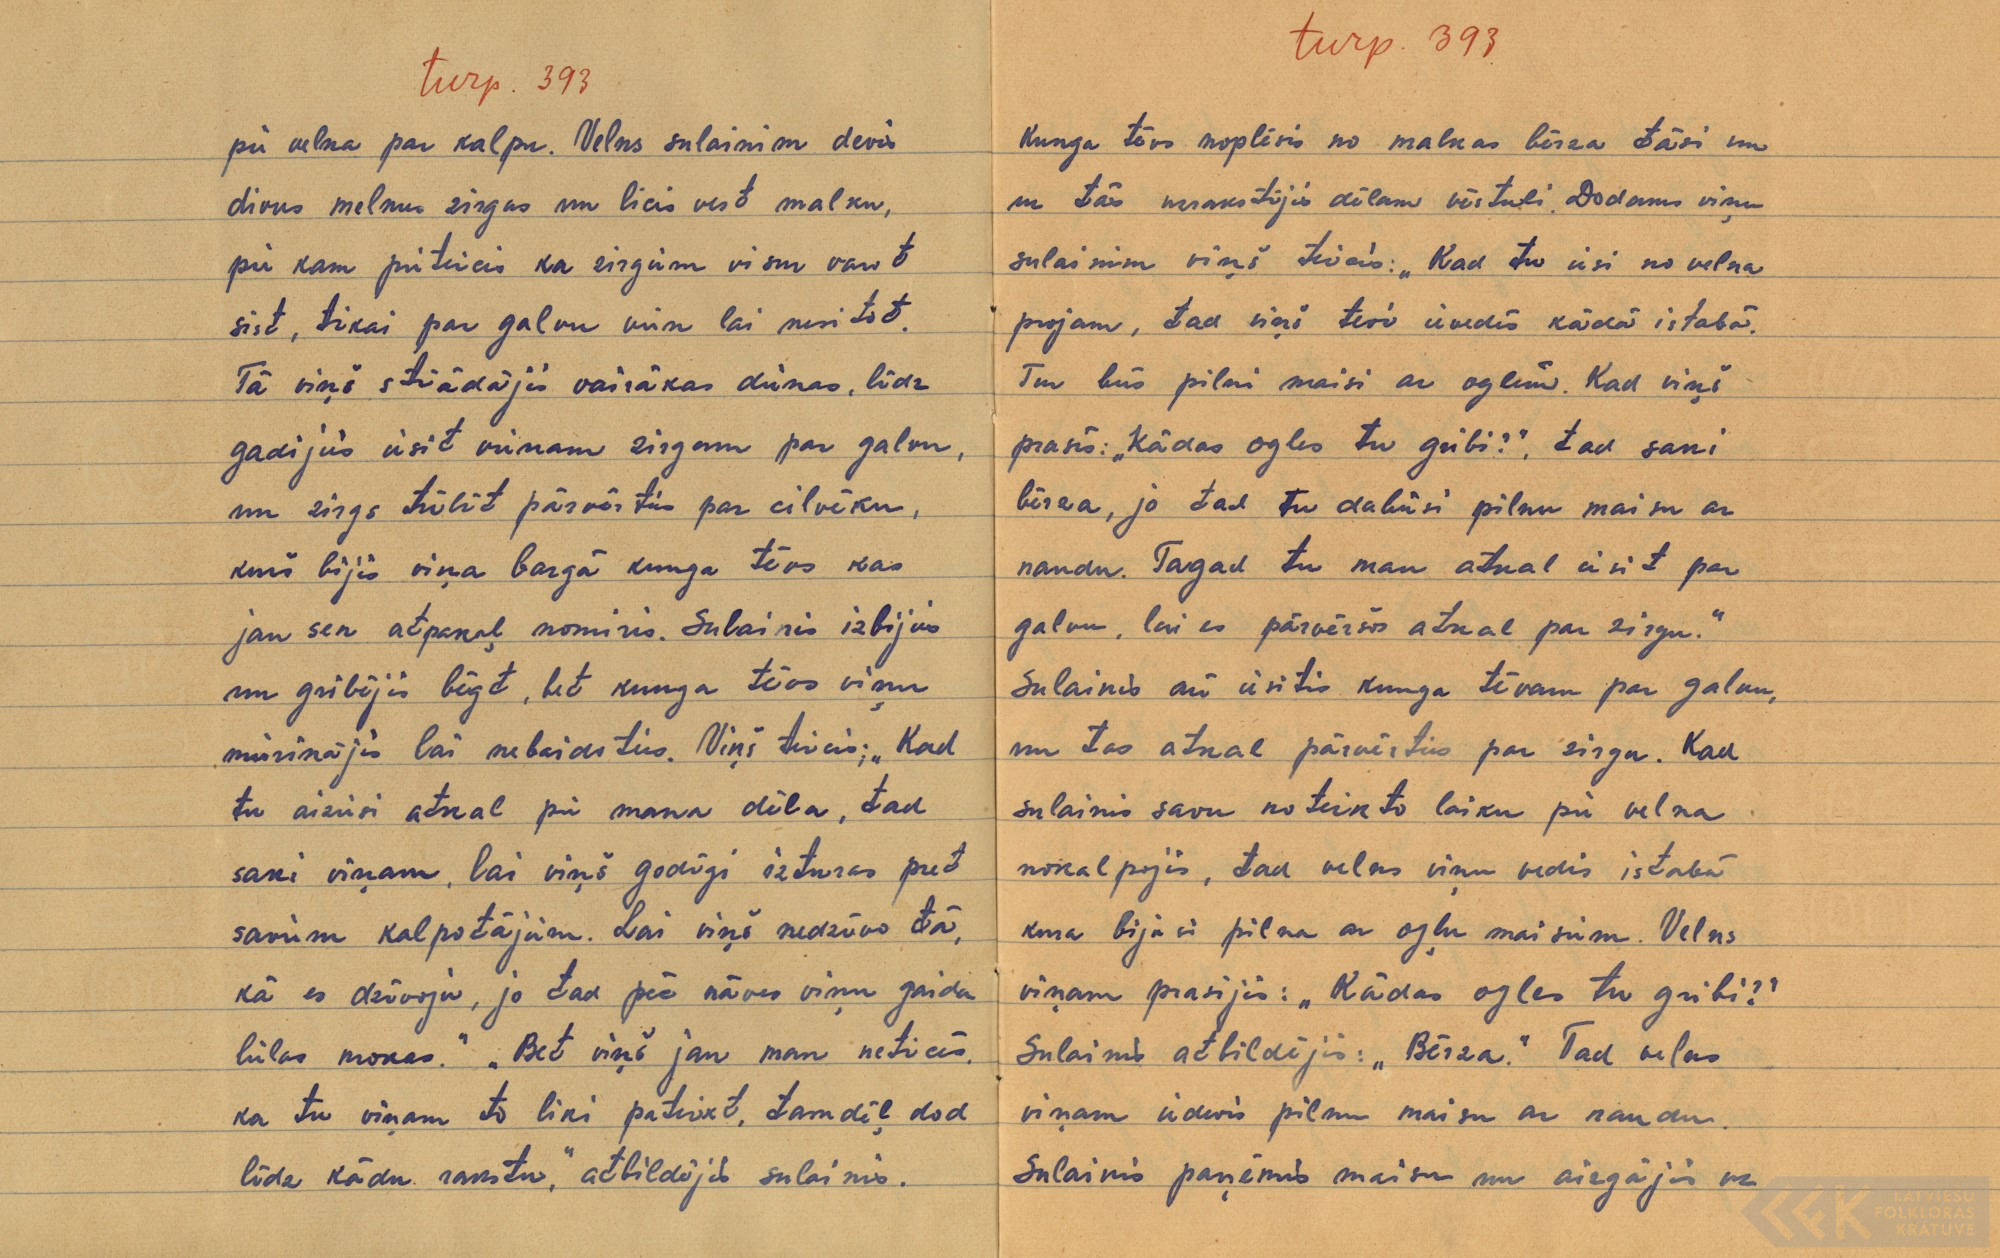 turp. 393
pie velna par kalpu. Velns sulainim devis
divus melnus zirgus un licis vest malku,
pie kam pieteicis ka zirgiem visur varot
sist, tikai par galvu vien lai nesitot.
Tā viņš strādājis vairākas dienas, līdz
gadijies iesist vienam zirgam par galvu,
un zirgs tūlīt pārvērties par cilvēku,
kurš bijis viņa bargā kunga tēvs kas
jau sen atpakaļ nomiris. Sulainis izbijies
un gribējis bēgt, bet kunga tēvs viņu
mierinājis lai nebaidoties. Viņš teicis: „Kad
tu aiziesi atkal pie mana dēla, tad
saki viņam, lai viņš godīgi izturas pret
saviem kalpotājiem. Lai viņš nedzīvo tā,
kā es dzīvoju, jo tad pēc nāves viņu gaida
lielas mokas.“ „Bet viņš jau man neticēs,
ka tu viņam to liki pateikt, tamdēļ dod
līdz kādu rakstu,“ atbildējis sulainis.
turp. 393
Kunga tēvs noplēsis no malkas bērza tāsi un
uz tās uzrakstījis dēlam vēstuli. Dodams viņu
sulainim viņš teicis: „Kad tu iesi no velna
projam, tad viņš tevi ievedīs kādā istabā.
Tur būs pilni maisi ar oglēm. Kad viņš
prasīs: „Kādas ogles tu gribi?“, tad saki
bērza, jo tad tu dabūsi pilnu maisu ar
naudu. Tagad tu man atkal iesit par
galvu, lai es pārvēršos atkal par zirgu.“
Sulainis arī iesitis kunga tēvam par galvu,
un tas atkal pārvērties par zirgu. Kad
sulainis savu noteikto laiku pie velna
nokalpojis, tad velns viņu vedis istabā
kura bijusi pilna ar ogļu maisiem. Velns
viņam prasijis: „Kādas ogles tu gribi?“
Sulainis atbildējis: „Bērza.“ Tad velns
viņam iedevis pilnu maisu ar naudu.
Sulainis paņēmis maisu un aizgājis uz
LATVIEŠU
FOLKLORAS
KRĀTUVE